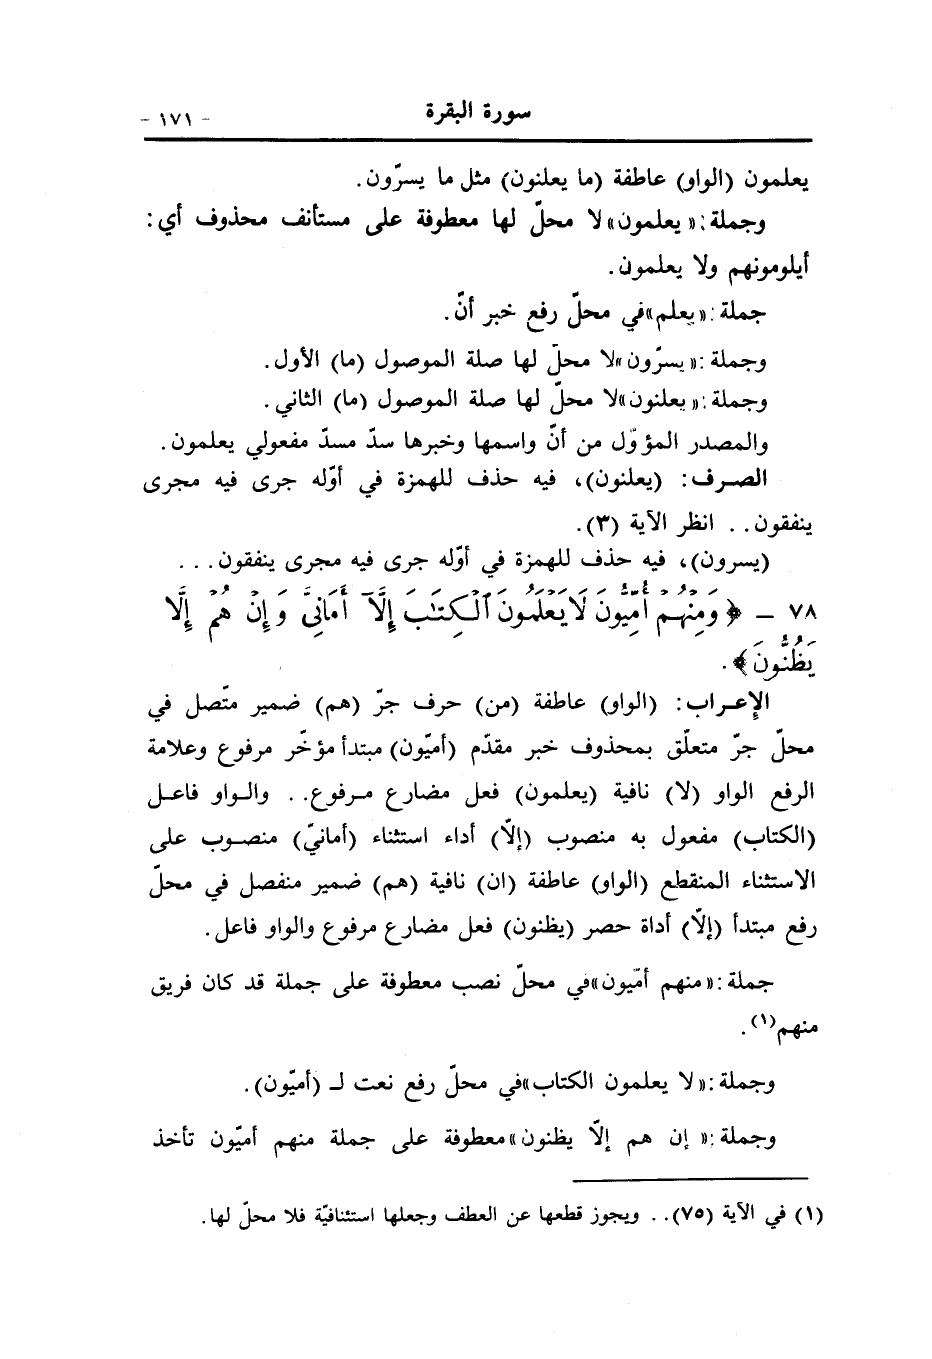 سورة البقرة
- ١٧١ -
يعلمون (الواو) عاطفة (ما يعلنون) مثل ما يسرّون.
وجملة: «يعلمون» لا محلّ لها معطوفة على مستأنف محذوف أي:
أيلومونهم ولا يعلمون.
جملة: «يعلم» في محلّ رفع خبر أنّ.
وجملة: «يسرّون» لا محلّ لها صلة الموصول (ما) الأول.
وجملة: «يعلنون» لا محلّ لها صلة الموصول (ما) الثاني.
والمصدر المؤوّل من أنّ واسمها وخبرها سدّ مسدّ مفعولي يعلمون.
الصرف: (يعلنون)، فيه حذف للهمزة في أوّله جرى فيه مجرى
ينفقون.. انظر الآية (٣).
(يسرون)، فيه حذف للهمزة في أوّله جرى فيه مجرى ينفقون...
٧٨ - ﴿وَمِنْهُمْ أُمِّيُّونَ لَا يَعْلَمُونَ ٱلْكِتَٰبَ إِلَّآ أَمَانِيَّ وَإِنْ هُمْ إِلَّا
يَظُنُّونَ﴾.
الإعراب: (الواو) عاطفة (من) حرف جرّ (هم) ضمير متّصل في
محلّ جرّ متعلّق بمحذوف خبر مقدّم (أميّون) مبتدأ مؤخّر مرفوع وعلامة
الرفع الواو (لا) نافية (يعلمون) فعل مضارع مرفوع.. والواو فاعل
(الكتاب) مفعول به منصوب (إلّا) أداء استثناء (أمانيّ) منصوب على
الاستثناء المنقطع (الواو) عاطفة (ان) نافية (هم) ضمير منفصل في محلّ
رفع مبتدأ (إلّا) أداة حصر (يظنون) فعل مضارع مرفوع والواو فاعل.
جملة: «منهم أمّيون» في محلّ نصب معطوفة على جملة قد كان فريق
منهم(١).
وجملة: «لا يعلمون الكتاب» في محلّ رفع نعت لـ (أميّون).
وجملة: «إن هم إلّا يظنون» معطوفة على جملة منهم أميّون تأخذ
(١) في الآية (٧٥).. ويجوز قطعها عن العطف وجعلها استئنافيّة فلا محلّ لها.